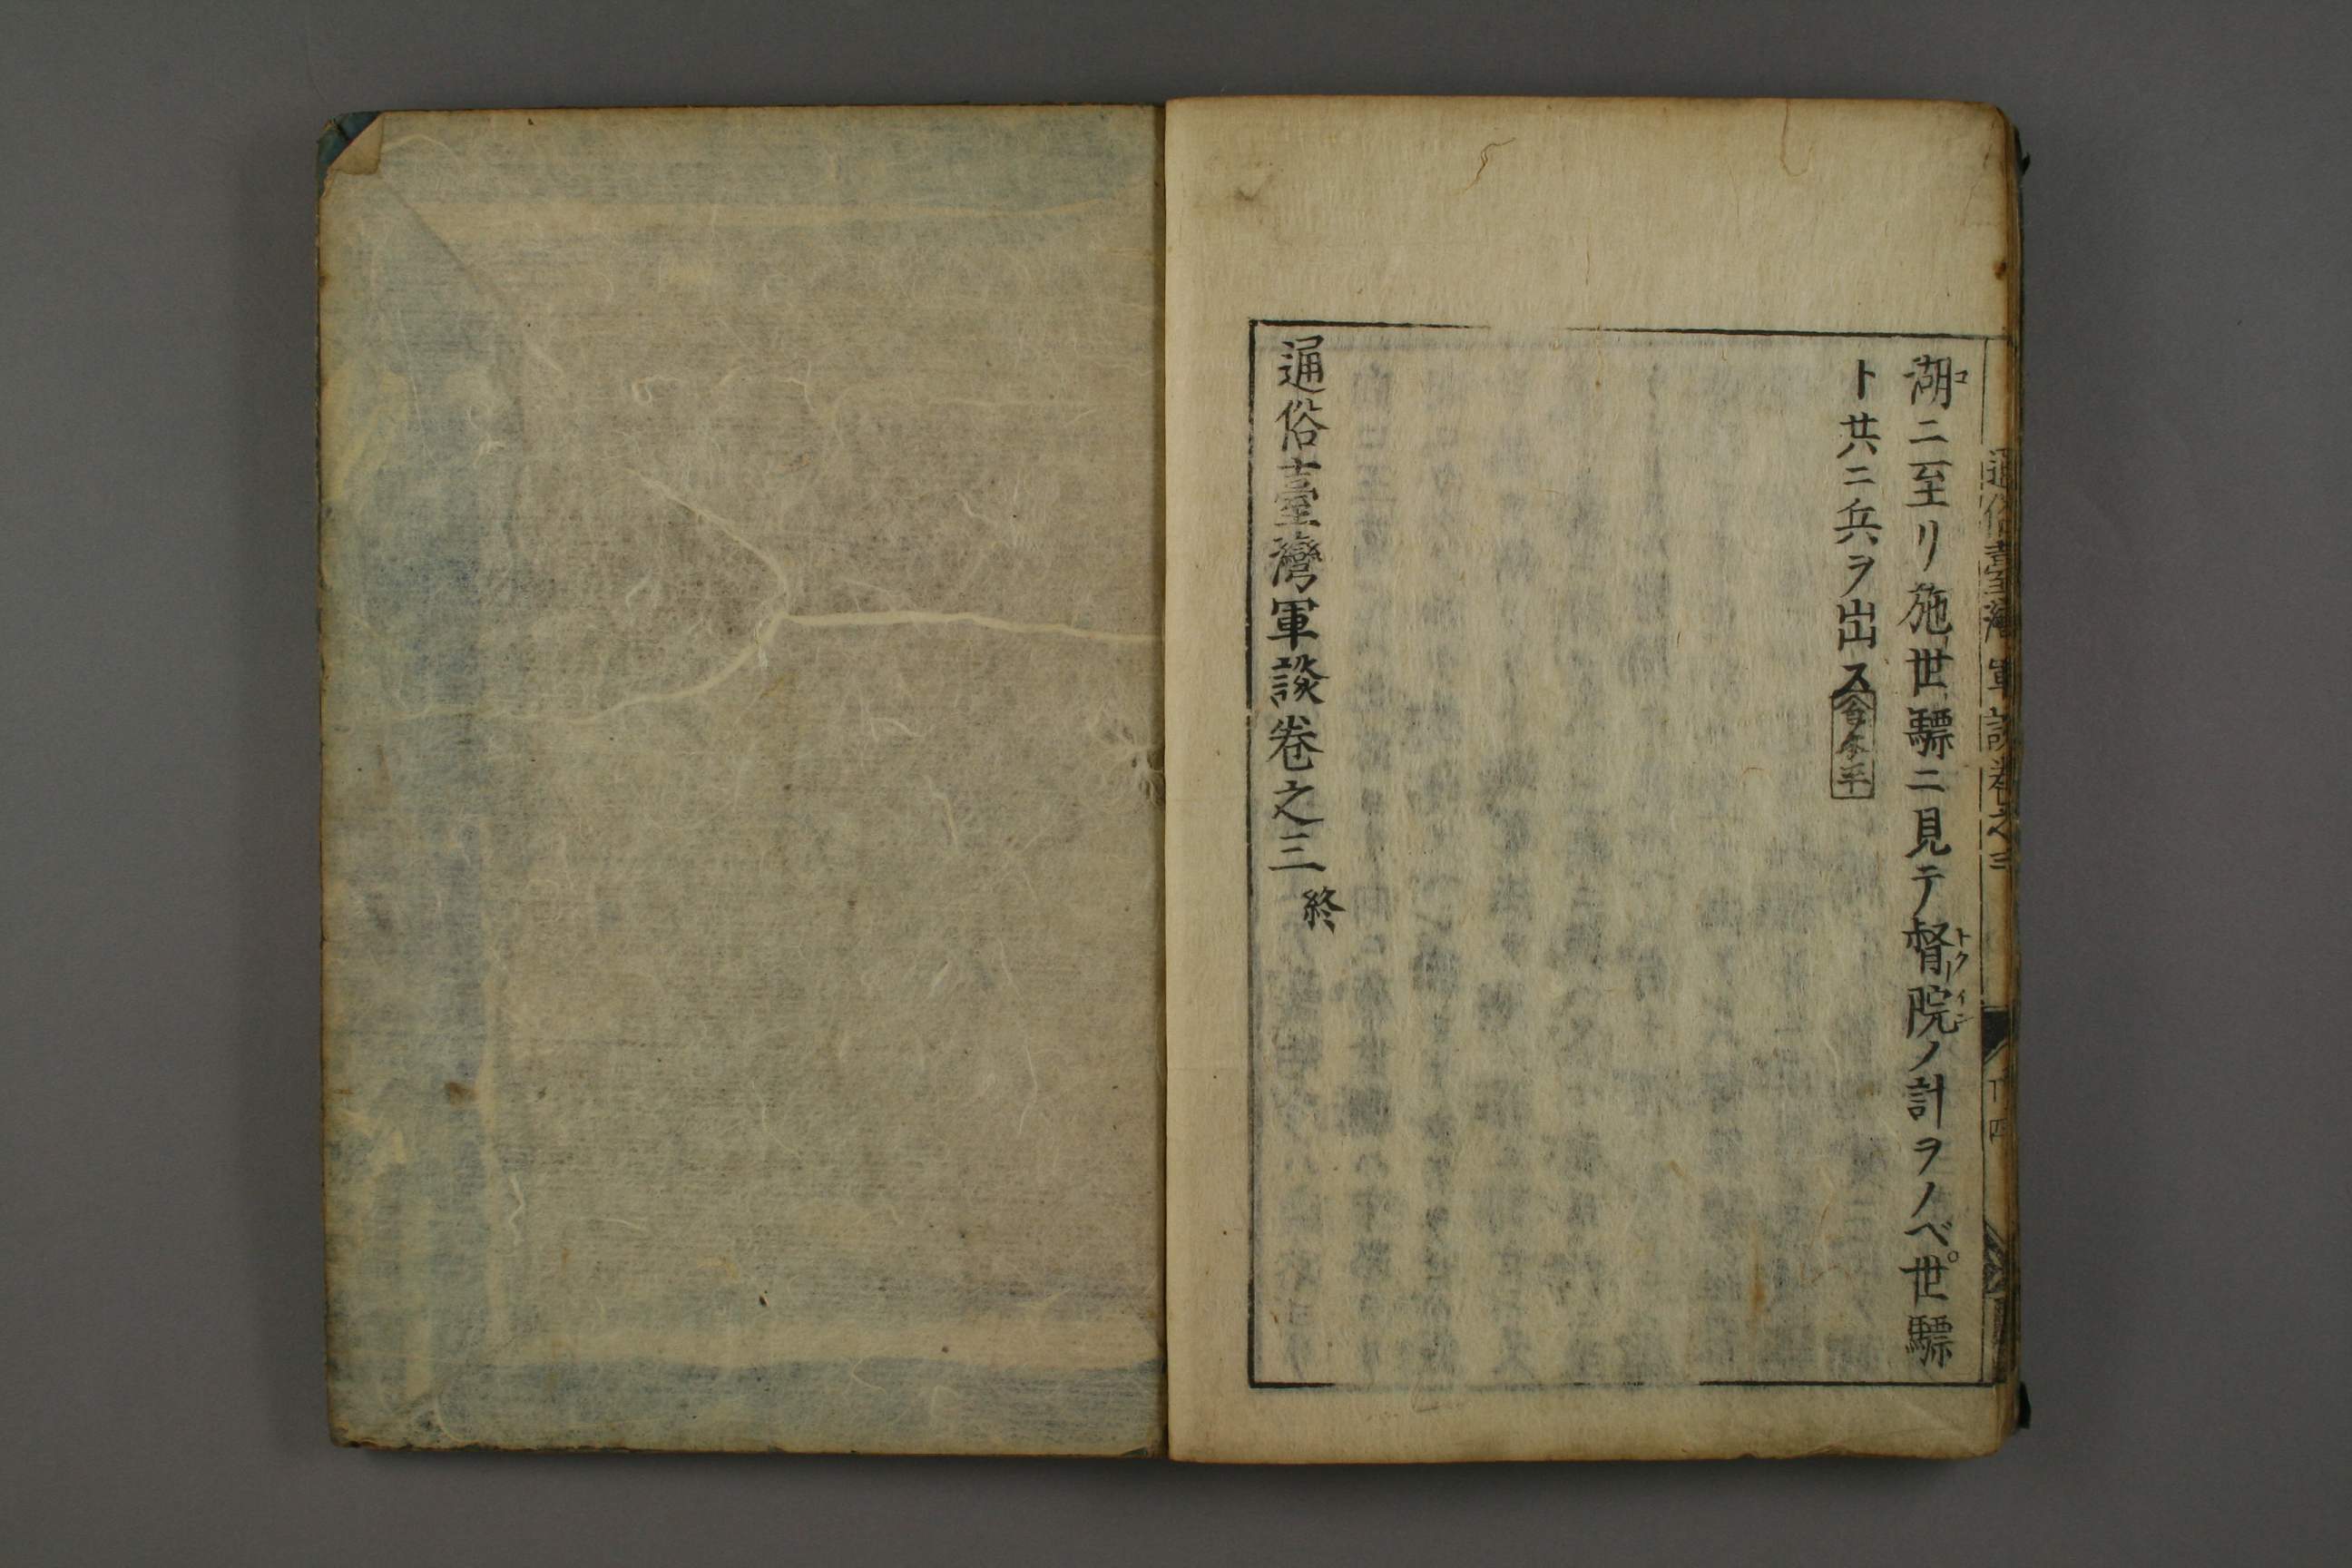 湖ニ至リ施世驃ニ見テ督院ノ計ヲノベ世驃
ト共ニ兵ヲ出ス
通俗臺灣軍談卷之三終
通俗臺灣軍談卷之三
十四
コ
トクイン